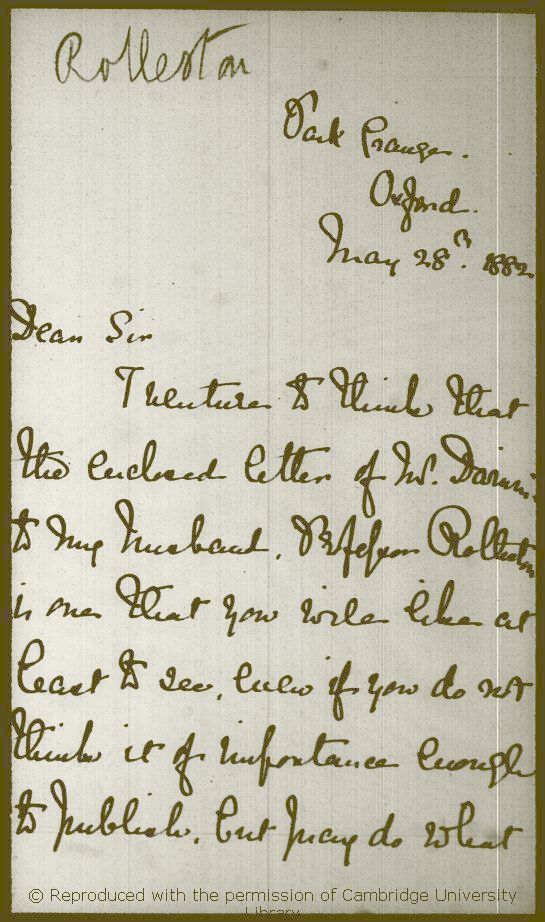 Rolleston
Park Grange.
Oxford.
May 28th. 1882
Dear Sir
I venture to think that
the enclosed letter of Mr. Darwin's
to my husband, Professor Rolleston
is one that you will like at
least to see, even if you do not
think it of importance enough
to publish, but pray do what
© Reproduced with the permission of Cambridge University
Library